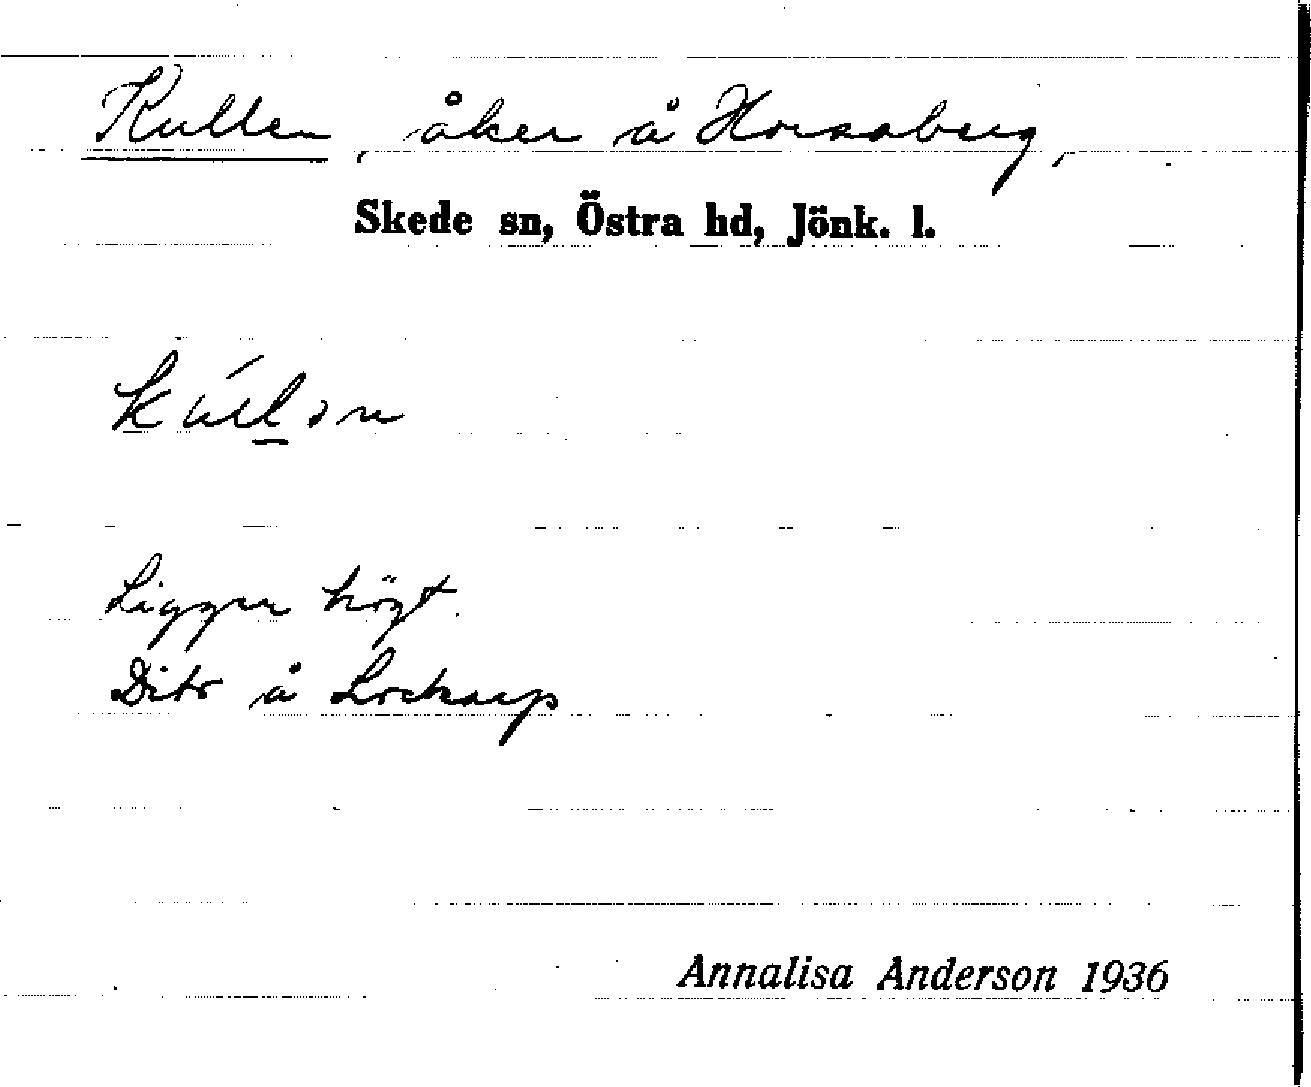 Kullen, åker å Horsaberg,
Skede sn, Östra hd, Jönk. l.
kúlən
Ligger högt.
Dito å Lockarp
Annalisa Anderson 1936